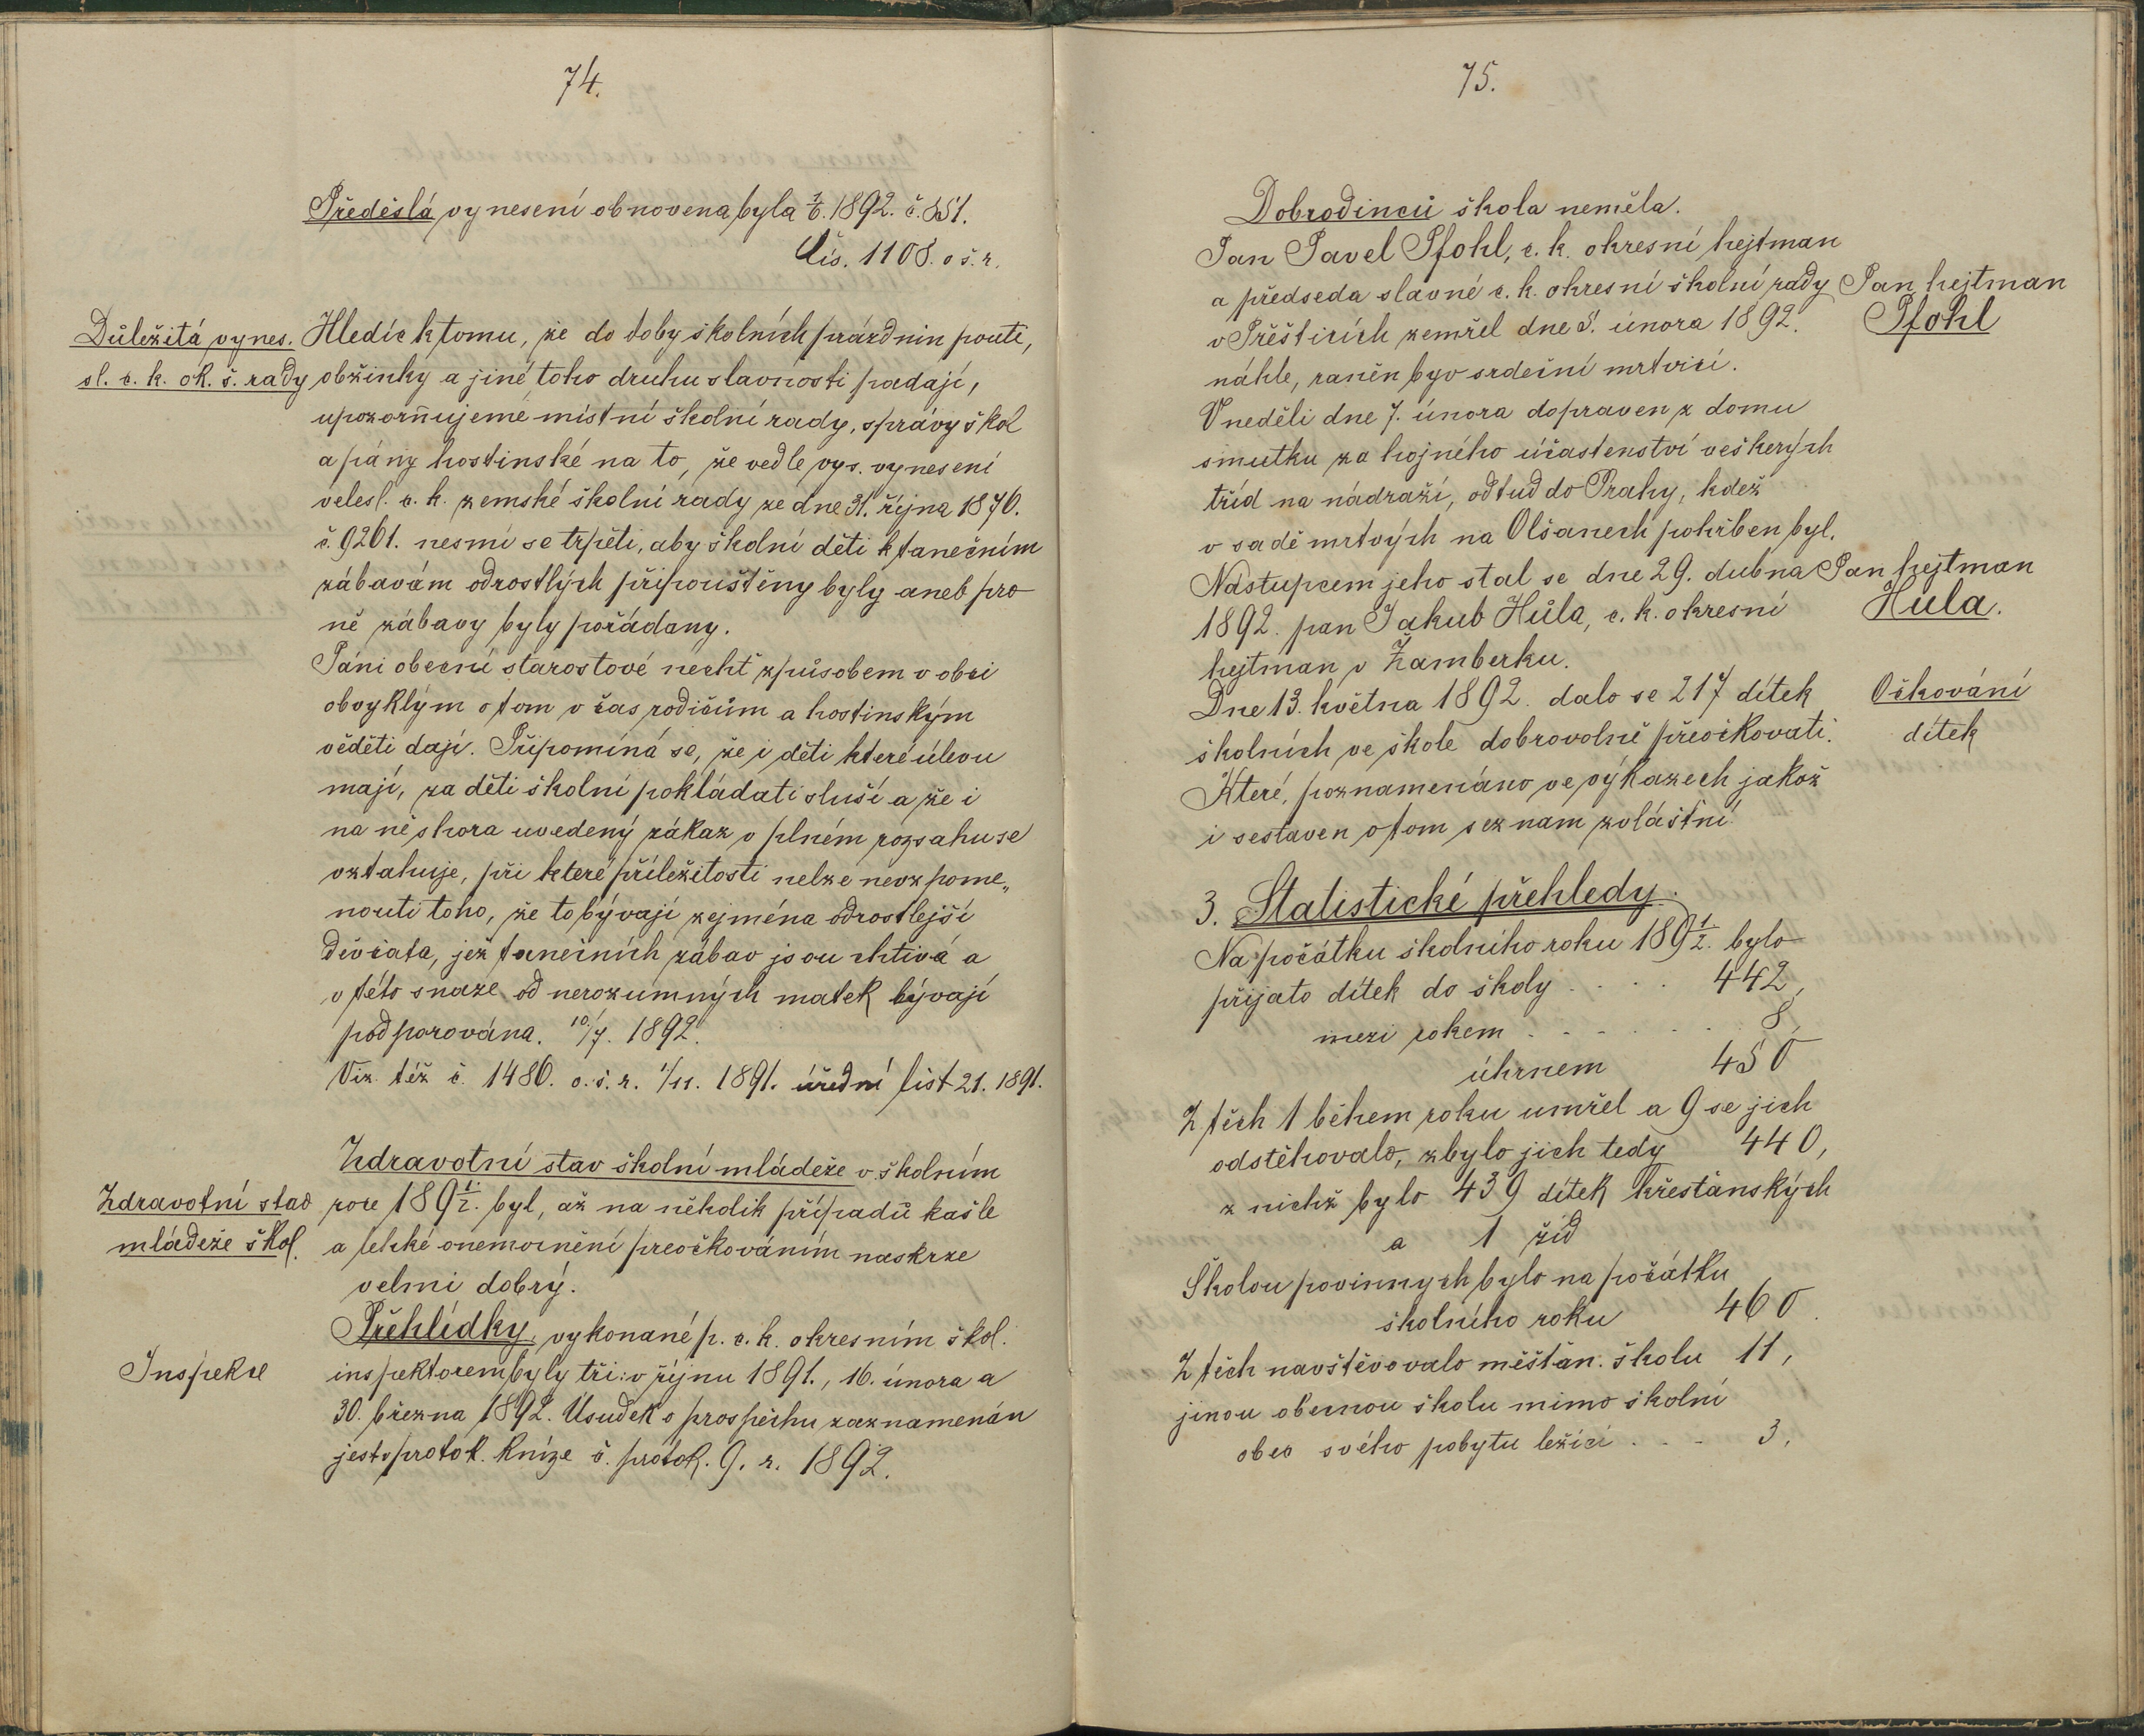 74.
Předešlá vynesení obnovena byla 1892. č. 851.
Čís. 1108. o š. r.
Důležitá vynes.
sl. c. k. ok. š. rady
Hledíc k tomu, že do doby školních prázdnin pouti,
obžinky a jiné toho druhu slavnosti padají,
upozorňujeme místní školní rady, správy škol
a pány hostinské na to, že vedle vys. vynesení
velesl. c. k. zemské školní rady ze dne 31. října 1876.
č. 9261. nesmí se trpěti, aby školní děti k tanečním
zábavám odrostlých připouštěny byly aneb pro
ně zábavy byly pořádany.
Páni obecní starostové nechť způsobem v obci
obvyklým o tom v čas rodičům a hostinským
věděti dají. Připomíná se, že i děti které úlevu
mají, za děti školní pokládati sluší a že i
na ně shora uvedený zákaz v plném rozsahu se
vztahuje, při které příležitosti nelze nevzpome„
nouti toho, že to bývají zejména odrostlejší
děvčata, jež tanečních zábav jsou chtivá a
v této snaze od nerozumných matek bývají
podporována. 10/7. 1892.
Viz též č. 1480. o. š. r. 1/11. 1891. úřední list 21. 1891.
Zdravotní stav
mládeže škol.
Zdravotní stav školní mládeže v školním
roce 1891/2. byl, až na několik případů kašle
a lehké onemocnění preočkováním naskrze
velmi dobrý.
Inspekce
Přehlídky, vykonané p. c. k. okresním škol.
inspektorem byly tři: v říjnu 1891., 16. února a
30. března 1892. Úsudek o prospěchu zaznamenán
jest v protok. knize č. protok. 9. r. 1892.
75.
Dobrodinců škola neměla.
Pan Pavel Pfohl, c. k. okresní hejtman
a předseda slavné c. k. okresní školní rady
v Přešticích zemřel dne 5. února 1892.
náhle, raněn byv srdeční mrtvicí.
V neděli dne 7. února dopraven z domu
smutku za hojného účastenství veškerých
tříd na nádraží, odtud do Prahy, kdež
v sadě mrtvých na Olšanech pohřben byl.
Pan hejtman
Pfohl
Nástupcem jeho stal se dne 29. dubna
1892. pan Jakub Hůla, c. k. okresní
hejtman v Žamberku.
Pan hejtman
Hůla.
Dne 13. května 1892. dalo se 217 dítek
školních ve škole dobrovolně přeočkovati.
Které, poznamenáno ve výkazech jakož
i sestaven o tom seznam zvláštní.
Očkování
dítek
3. Statistické přehledy.
Na počátku školního roku 1891/2. bylo
přijato dítek do školy . . . . 442,
mezi rokem . . . . . . . 8,
úhrnem 450
Z těch 1 během roku umřel a 9 se jich
odstěhovalo, zbylo jich tedy 440,
z nichž bylo 439 dítek křesťanských
a 1 žid
Školou povinnych bylo na počátku
školního roku 460.
Z těch navštěvovalo měšťan. školu 11,
jinou obecnou školu mimo školní
obec svého pobytu ležící . . . 3,